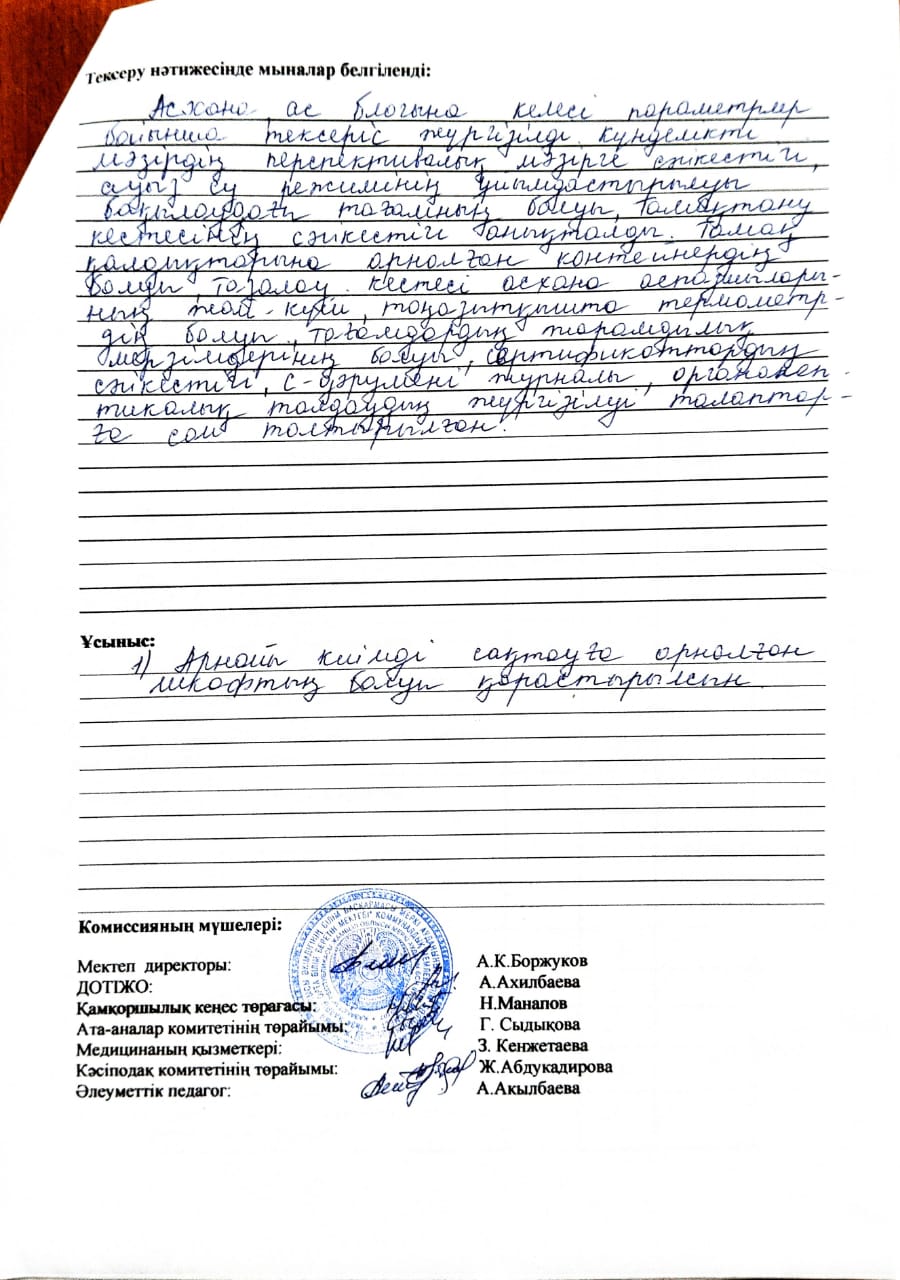 Тексеру нәтижесінде мыналар белгіленді:
Асхана ас блогына келесі параметрлер
бойынша тексеріс жүргізілді күнделікті
мәзірдің перспективалық мәзірге сәйкестігі,
ауыз су режимінің ұйымдастырылуы
бақылаудағы тағамның болуы, тамақтану
кестесінің сәйкестігі анықталды. Тамақ
қалдықтарына арналған контейнердің
болуы, тазалау кестесі асхана аспазшылары-
ның жай-күйі, тоңазытқышта термометр-
дің болуы, тағамдардың жарамдылық
мерзімдерінің болуы, сертификаттардың
сәйкестігі, С-дәрумені журналы, органолеп-
тикалық талдаудың жүргізілуі талаптар-
ға сай толтырылған.
Ұсыныс:
1) Арнайы киімді сақтауға арналған
шкафтың болуы қарастырылсын.
Комиссияның мүшелері:
Мектеп директоры: А.К.Боржуков
ДОТІЖО: А.Ахилбаева
Қамқоршылық кеңес төрағасы: Н.Манапов
Ата-аналар комитетінің төрайымы: Г. Сыдықова
Медицинаның қызметкері: З. Кенжетаева
Кәсіподақ комитетінің төрайымы: Ж.Абдукадирова
Әлеуметтік педагог: А.Акылбаева